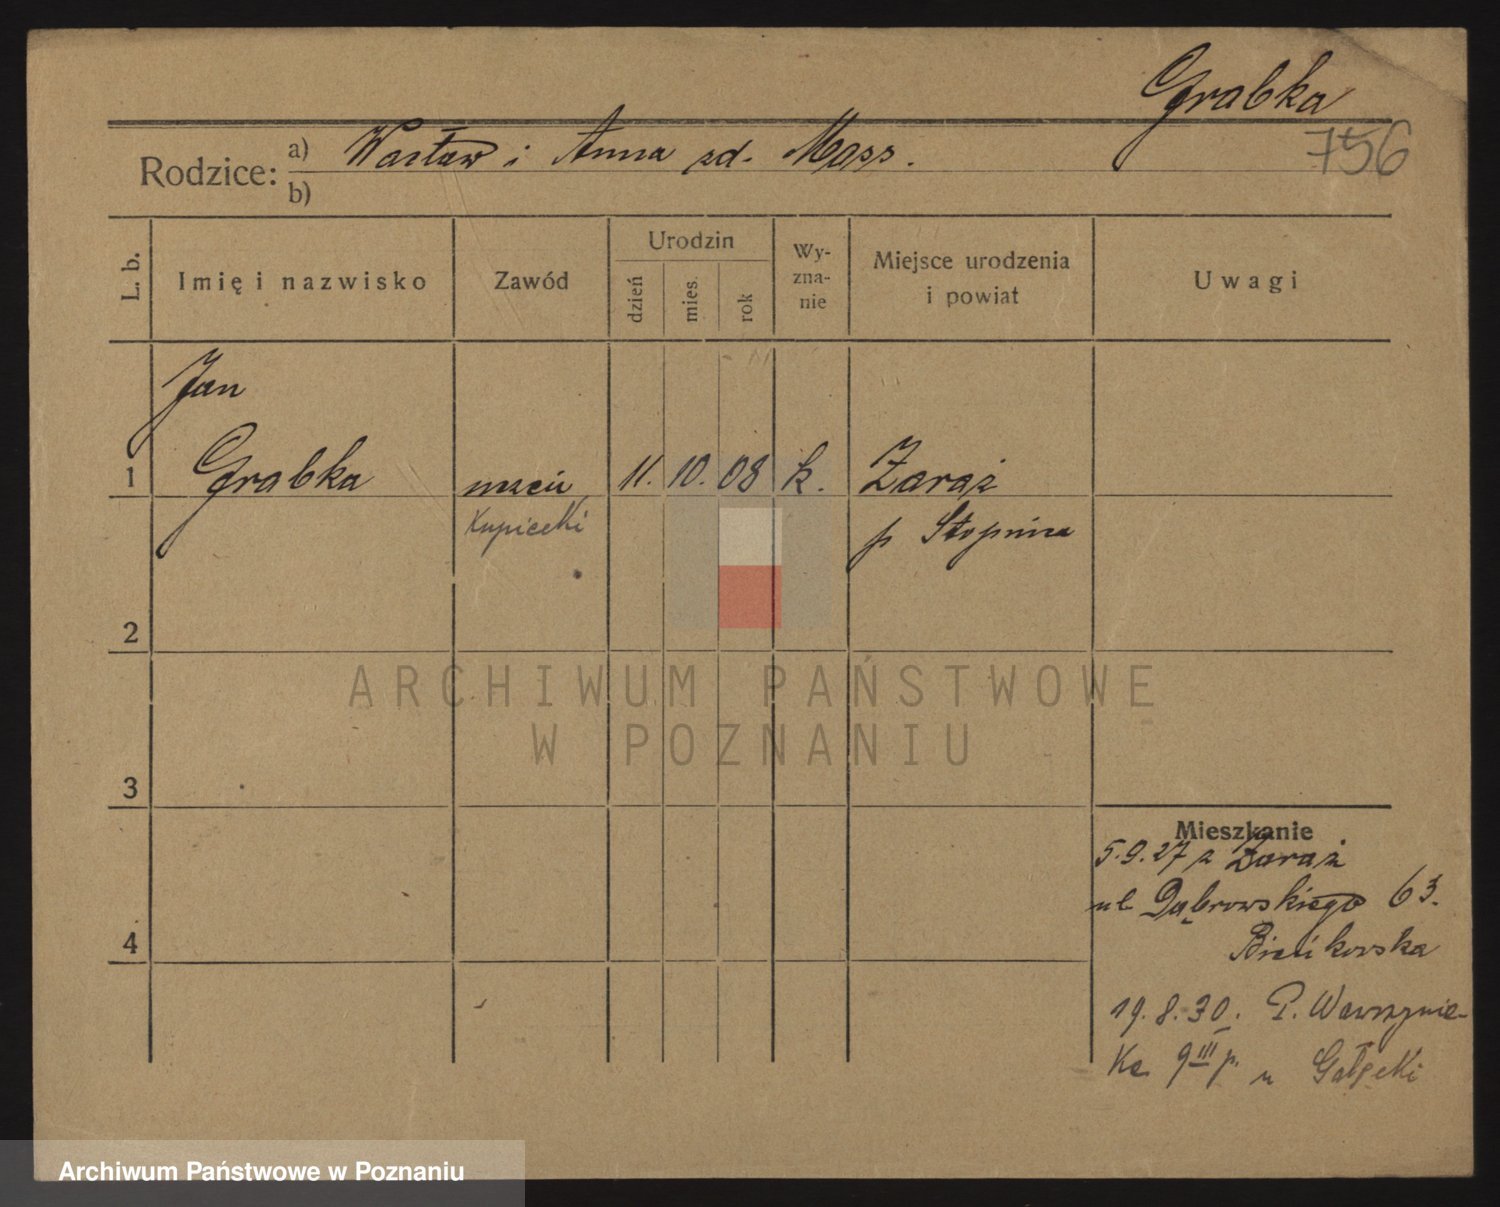 Grabka
756
Rodzice: a) Wacław i Anna zd. Mass.
b)
L. b.
Imię i nazwisko
Zawód
Urodzin
dzień
mies.
rok
Wy-
zna-
nie
Miejsce urodzenia
i powiat
Uwagi
Jan
1 Grabka uczeń 11. 10. 08 k. Zaraż
Kupiecki p Stopnica
2
3
4
Mieszkanie
5.9.27 z Zaraż
ul Dąbrowskiego 63.
19.8.30. P. Wawrzynie-
ka 9 III p. u
ARCHIWUM PAŃSTWOWE
W POZNANIU
Archiwum Państwowe w Poznaniu